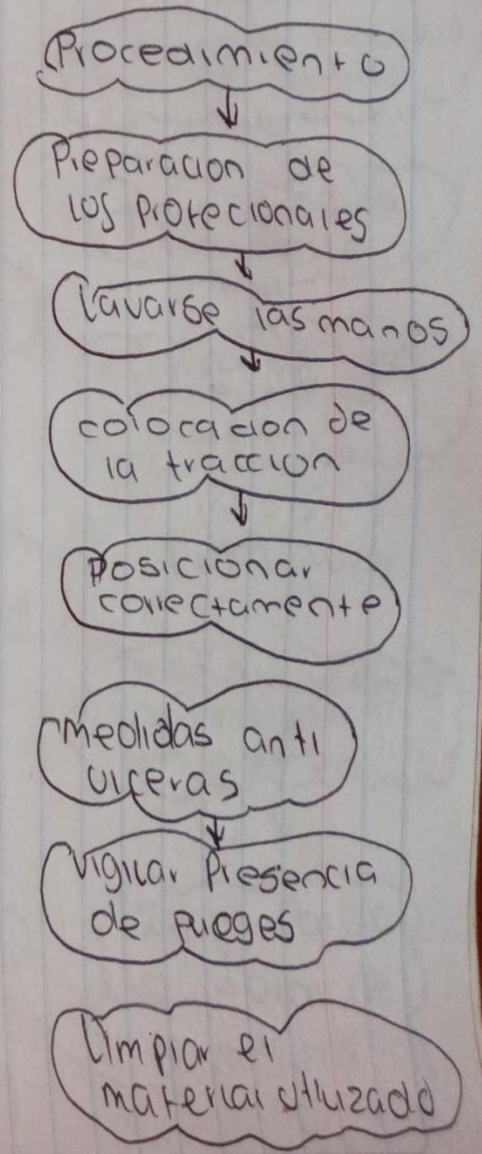 Procedimiento
Preparacion de
los profecionales
Lavarse las manos
colocacion de
la traccion
Posicionar
correctamente
medidas anti
ulceras
Vigilar Presencia
de plieges
Limpiar el
material utilizado